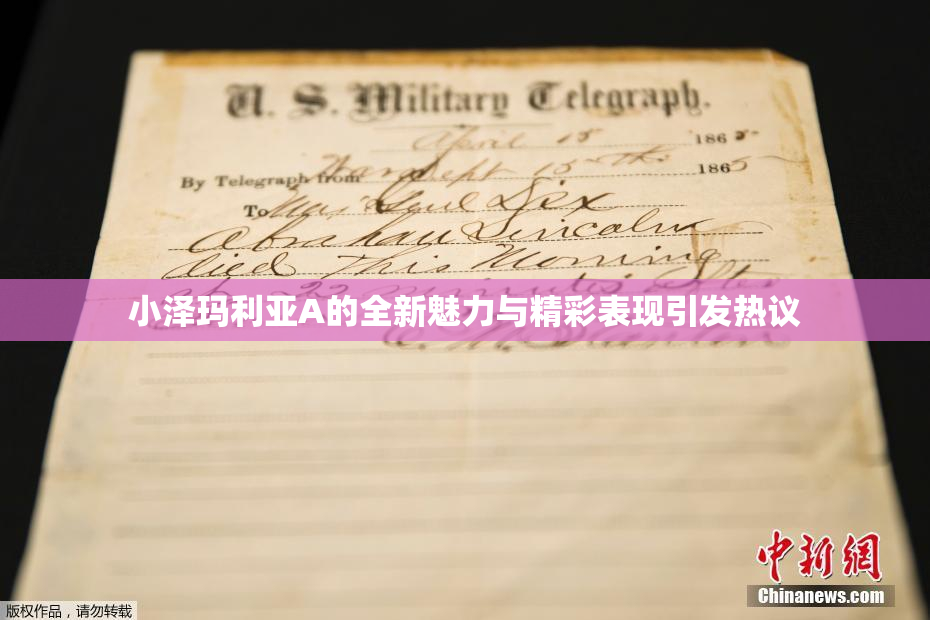 U. S. Military Telegraph.
April 15 1865
By Telegraph from War Dept 15th 1865
To Maj Genl Dix
Abraham Lincoln
died This Morning
at 22 minutes after
小泽玛利亚A的全新魅力与精彩表现引发热议
中新网
Chinanews.com
版权作品，请勿转载